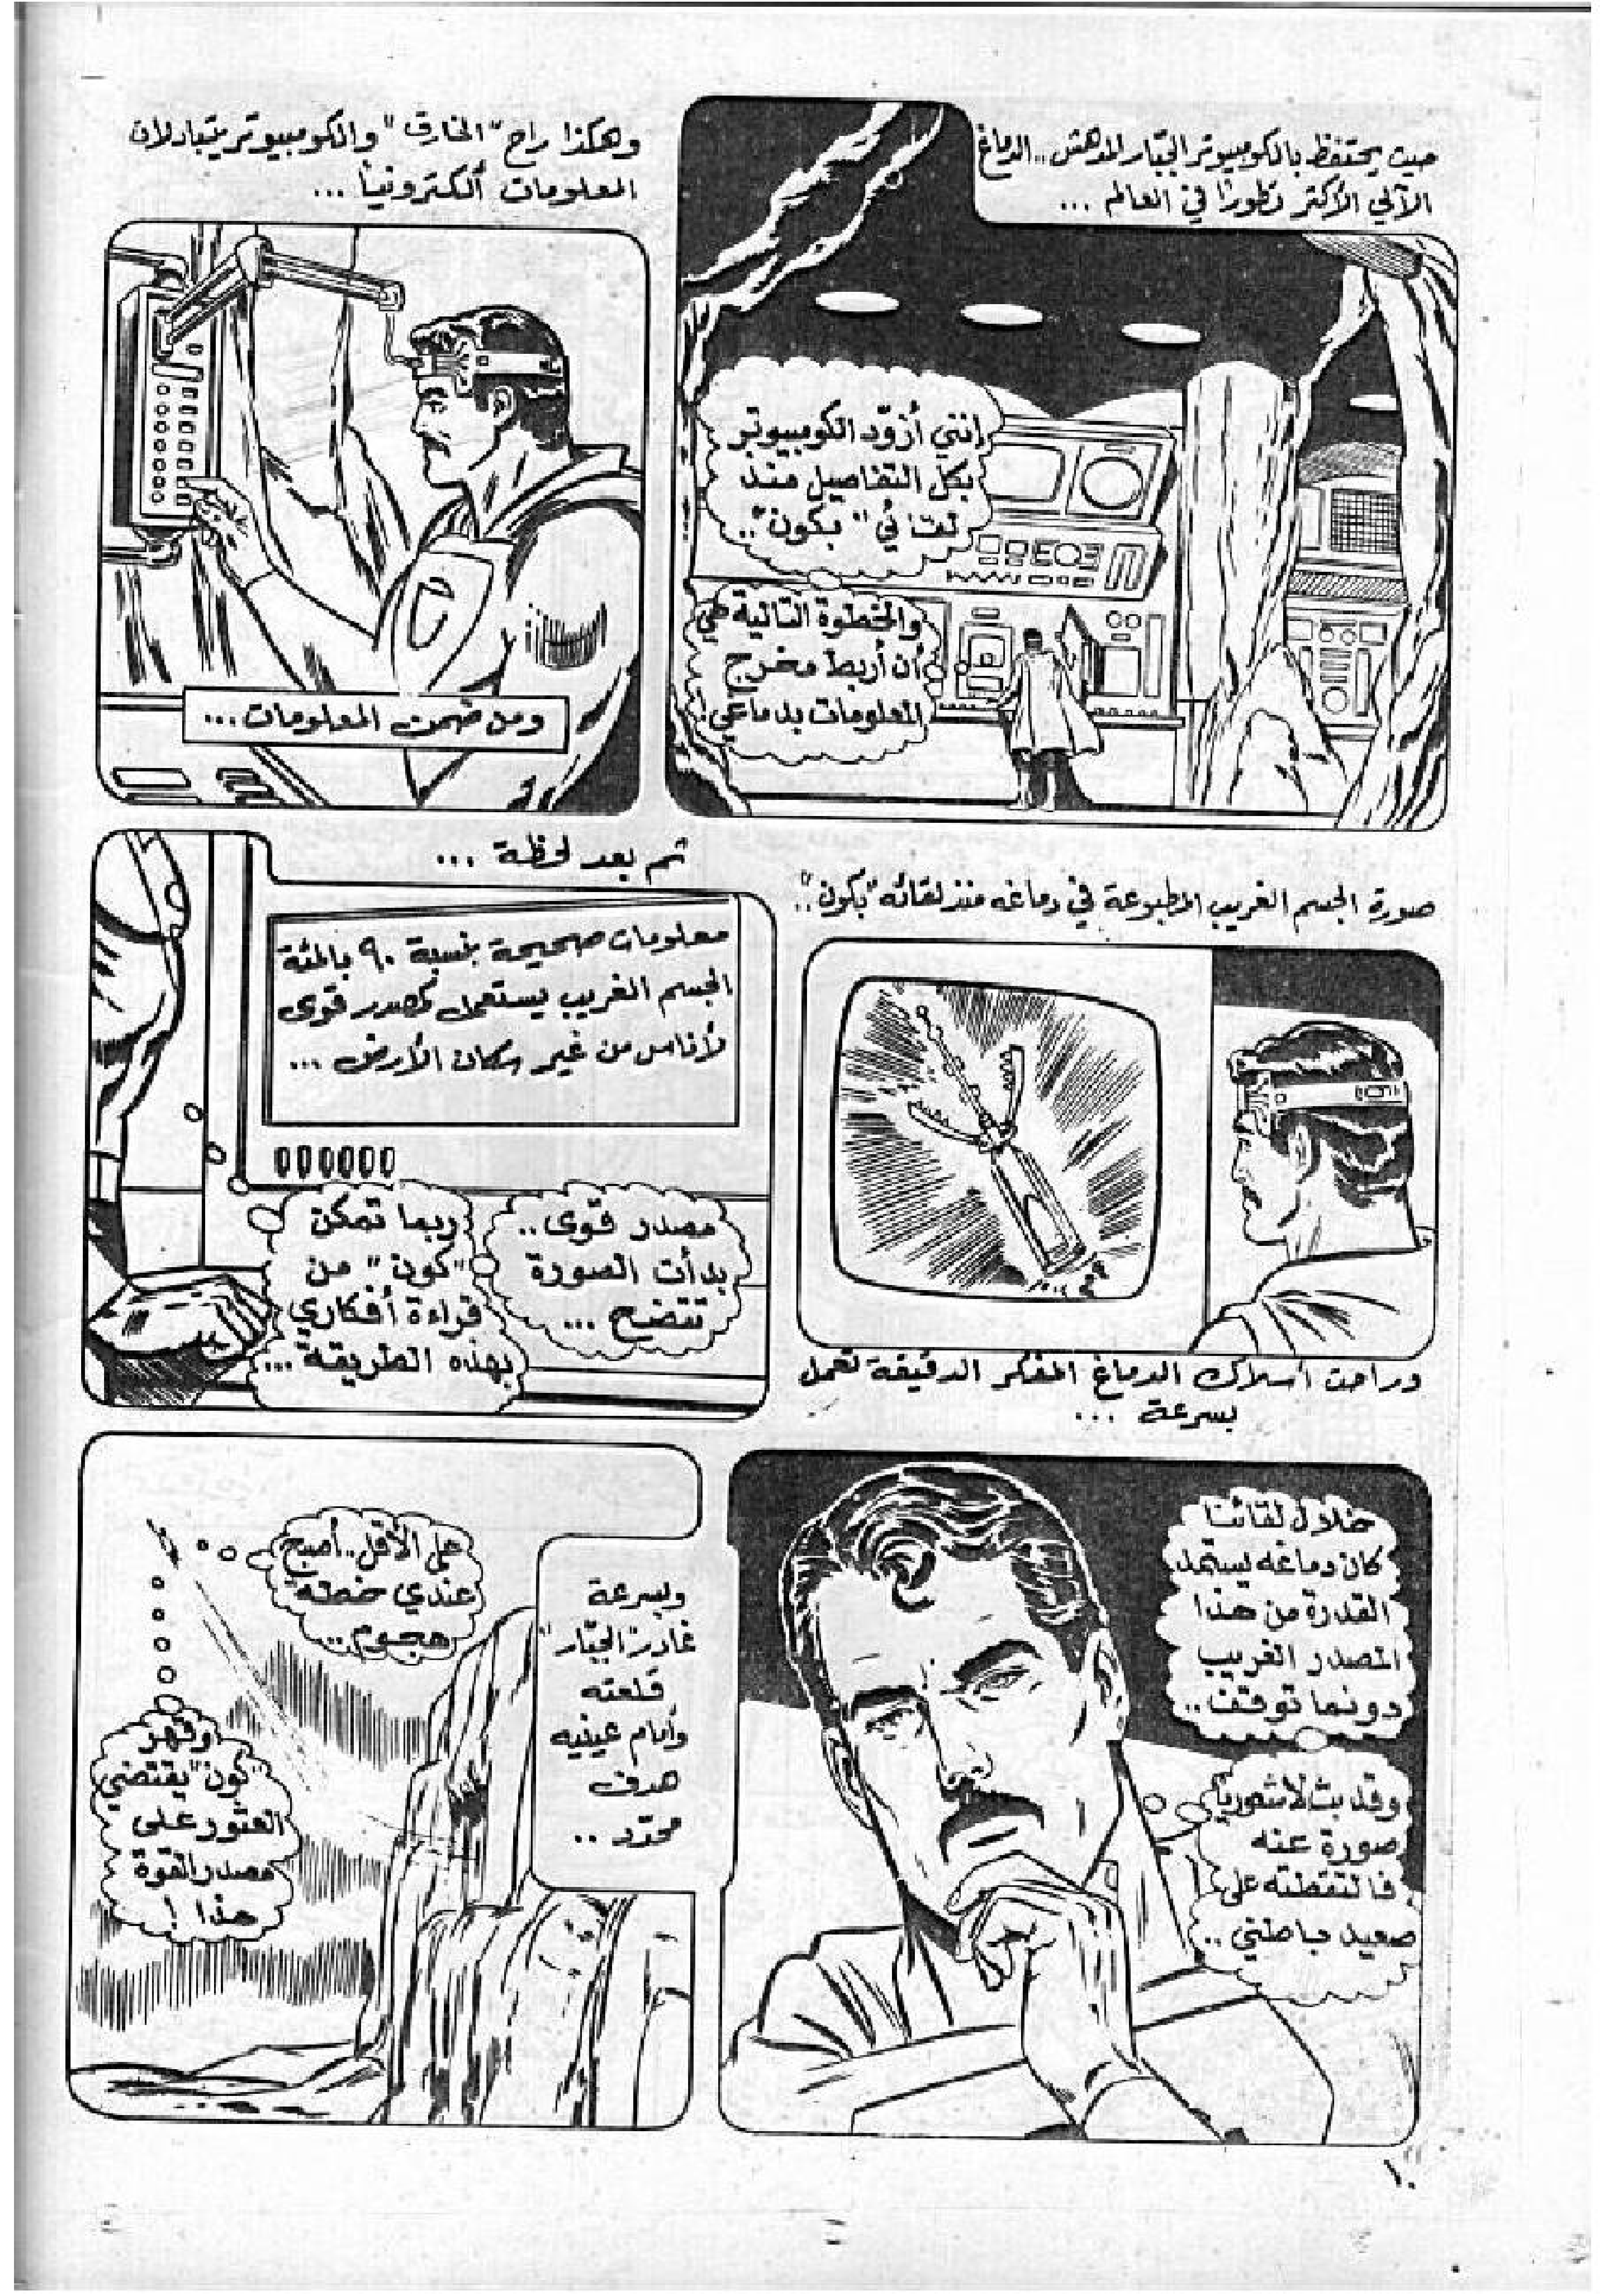 حيث يحتفظ بالكومبيوتر الجبّار المدهش .. الدماغ
الآلي الأكثر تطورًا في العالم ...
إنني أزوّد الكومبيوتر
بكل التفاصيل منذ
لقائي "بكون" ..
والخطوة التالية هي
أن أربط مخرج
المعلومات بدماغي !
وهكذا راح "الخارق" والكومبيوتر يتبادلان
المعلومات ألكترونيًا ...
ومن ضمن المعلومات ...
صورة الجسم الغريب المطبوعة في دماغه منذ لقائه "بكون" ..
وراحت أسلاك الدماغ المفكر الدقيقة تعمل
بسرعة ...
ثم بعد لحظة ...
معلومات صحيحة بنسبة ٩٠ بالمئة
الجسم الغريب يستعمل كمصدر قوى
لأناس من غير سكان الأرض ...
مصدر قوى ..
بدأت الصورة
تتضح ...
ربما تمكن
"كون" من
قراءة أفكاري
بهذه الطريقة ...
خلال لقائنا
كان دماغه يستمد
القدرة من هذا
المصدر الغريب
دونما توقف ..
وقد بث لاشعوريا
صورة عنه
فالتقطته على
صعيد باطني ..
وبسرعة
غادر "الجبّار"
قلعته
وأمام عينيه
هدف
محدّد ..
على الأقل .. أصبح
عندي خطة
هجوم ..
وقهر
"كون" يقتضي
العثور على
مصدر القوة
هذا !
١٠